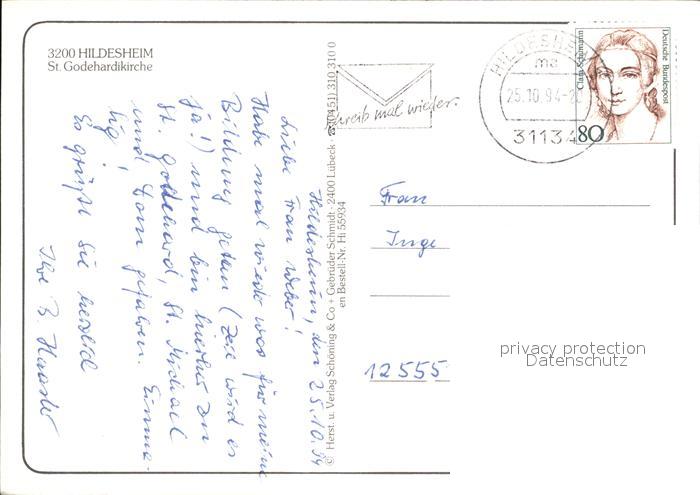 3200 HILDESHEIM
St. Godehardikirche
Hildesheim, den 25.10.94
Liebe Frau Weber!
Habe mal wieder was für meine
Bildung getan (Zeit wird es
ja!) und bin hierher zu
St. Godehard, St. Michael
und Dom gefahren. Einma-
lig!
So grüßt Sie herzlich
Ihre B. Haaster
© Herst. u. Verlag Schöning & Co + Gebrüder Schmidt · 2400 Lübeck · ☎ (0451) 310 310 0
en Bestell-Nr. Hi 55934
Schreib mal wieder.
HILDESHEIM
ma
25.10.94-2
31134
Clara Schumann
Deutsche Bundespost
80
Frau
Inge
12555
privacy protection
Datenschutz